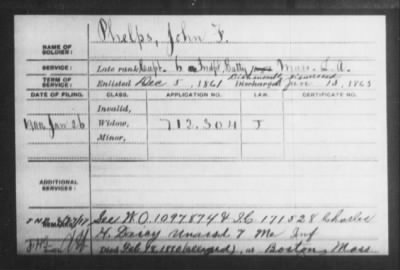 Phelps, John F.
NAME OF
SOLDIER:
SERVICE:
Late rank, Capt. 6 Indpt. Batty Mass. L. A.
TERM OF
SERVICE:
Dishonorably dismissed
Enlisted Dec 5, 1861 Discharged 13, 1863
DATE OF FILING.
CLASS.
APPLICATION NO.
LAW.
CERTIFICATE NO.
Invalid,
Jan 26
Widow,
712.304
J
Minor,
ADDITIONAL
SERVICES:
REMARKS:
See W.O. 1097874 & I.C. 171528 Charles
H. Darcy Unassd 7 Me Inf
Died Feb. 18, 1880 (alleged), at Boston, Mass.